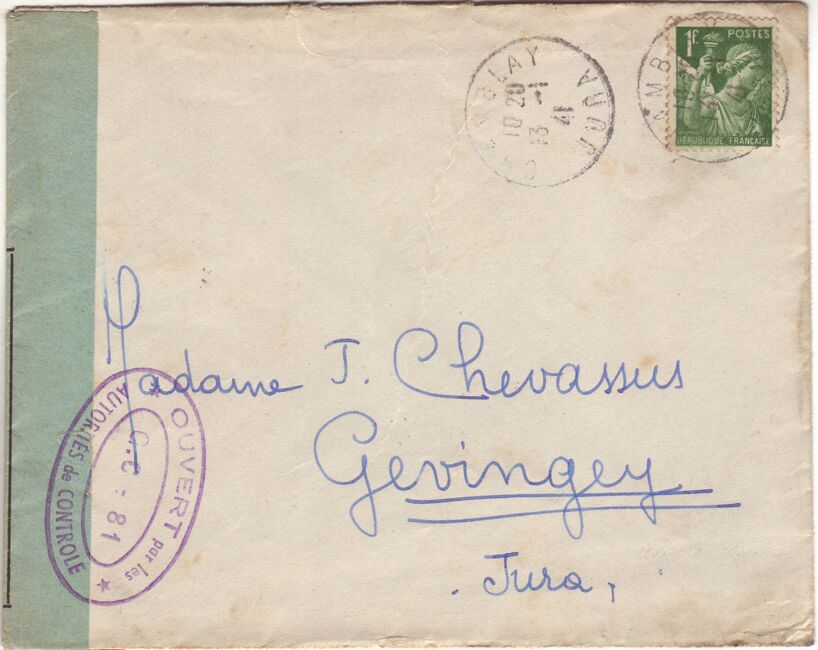 1F. POSTES
RÉPUBLIQUE FRANÇAISE
CHAMBLAY
10 20
13 -1
41
JURA
Madame J. Chevassus
Gevingey
Jura
OUVERT par les
AUTORITÉS de CONTROLE
81